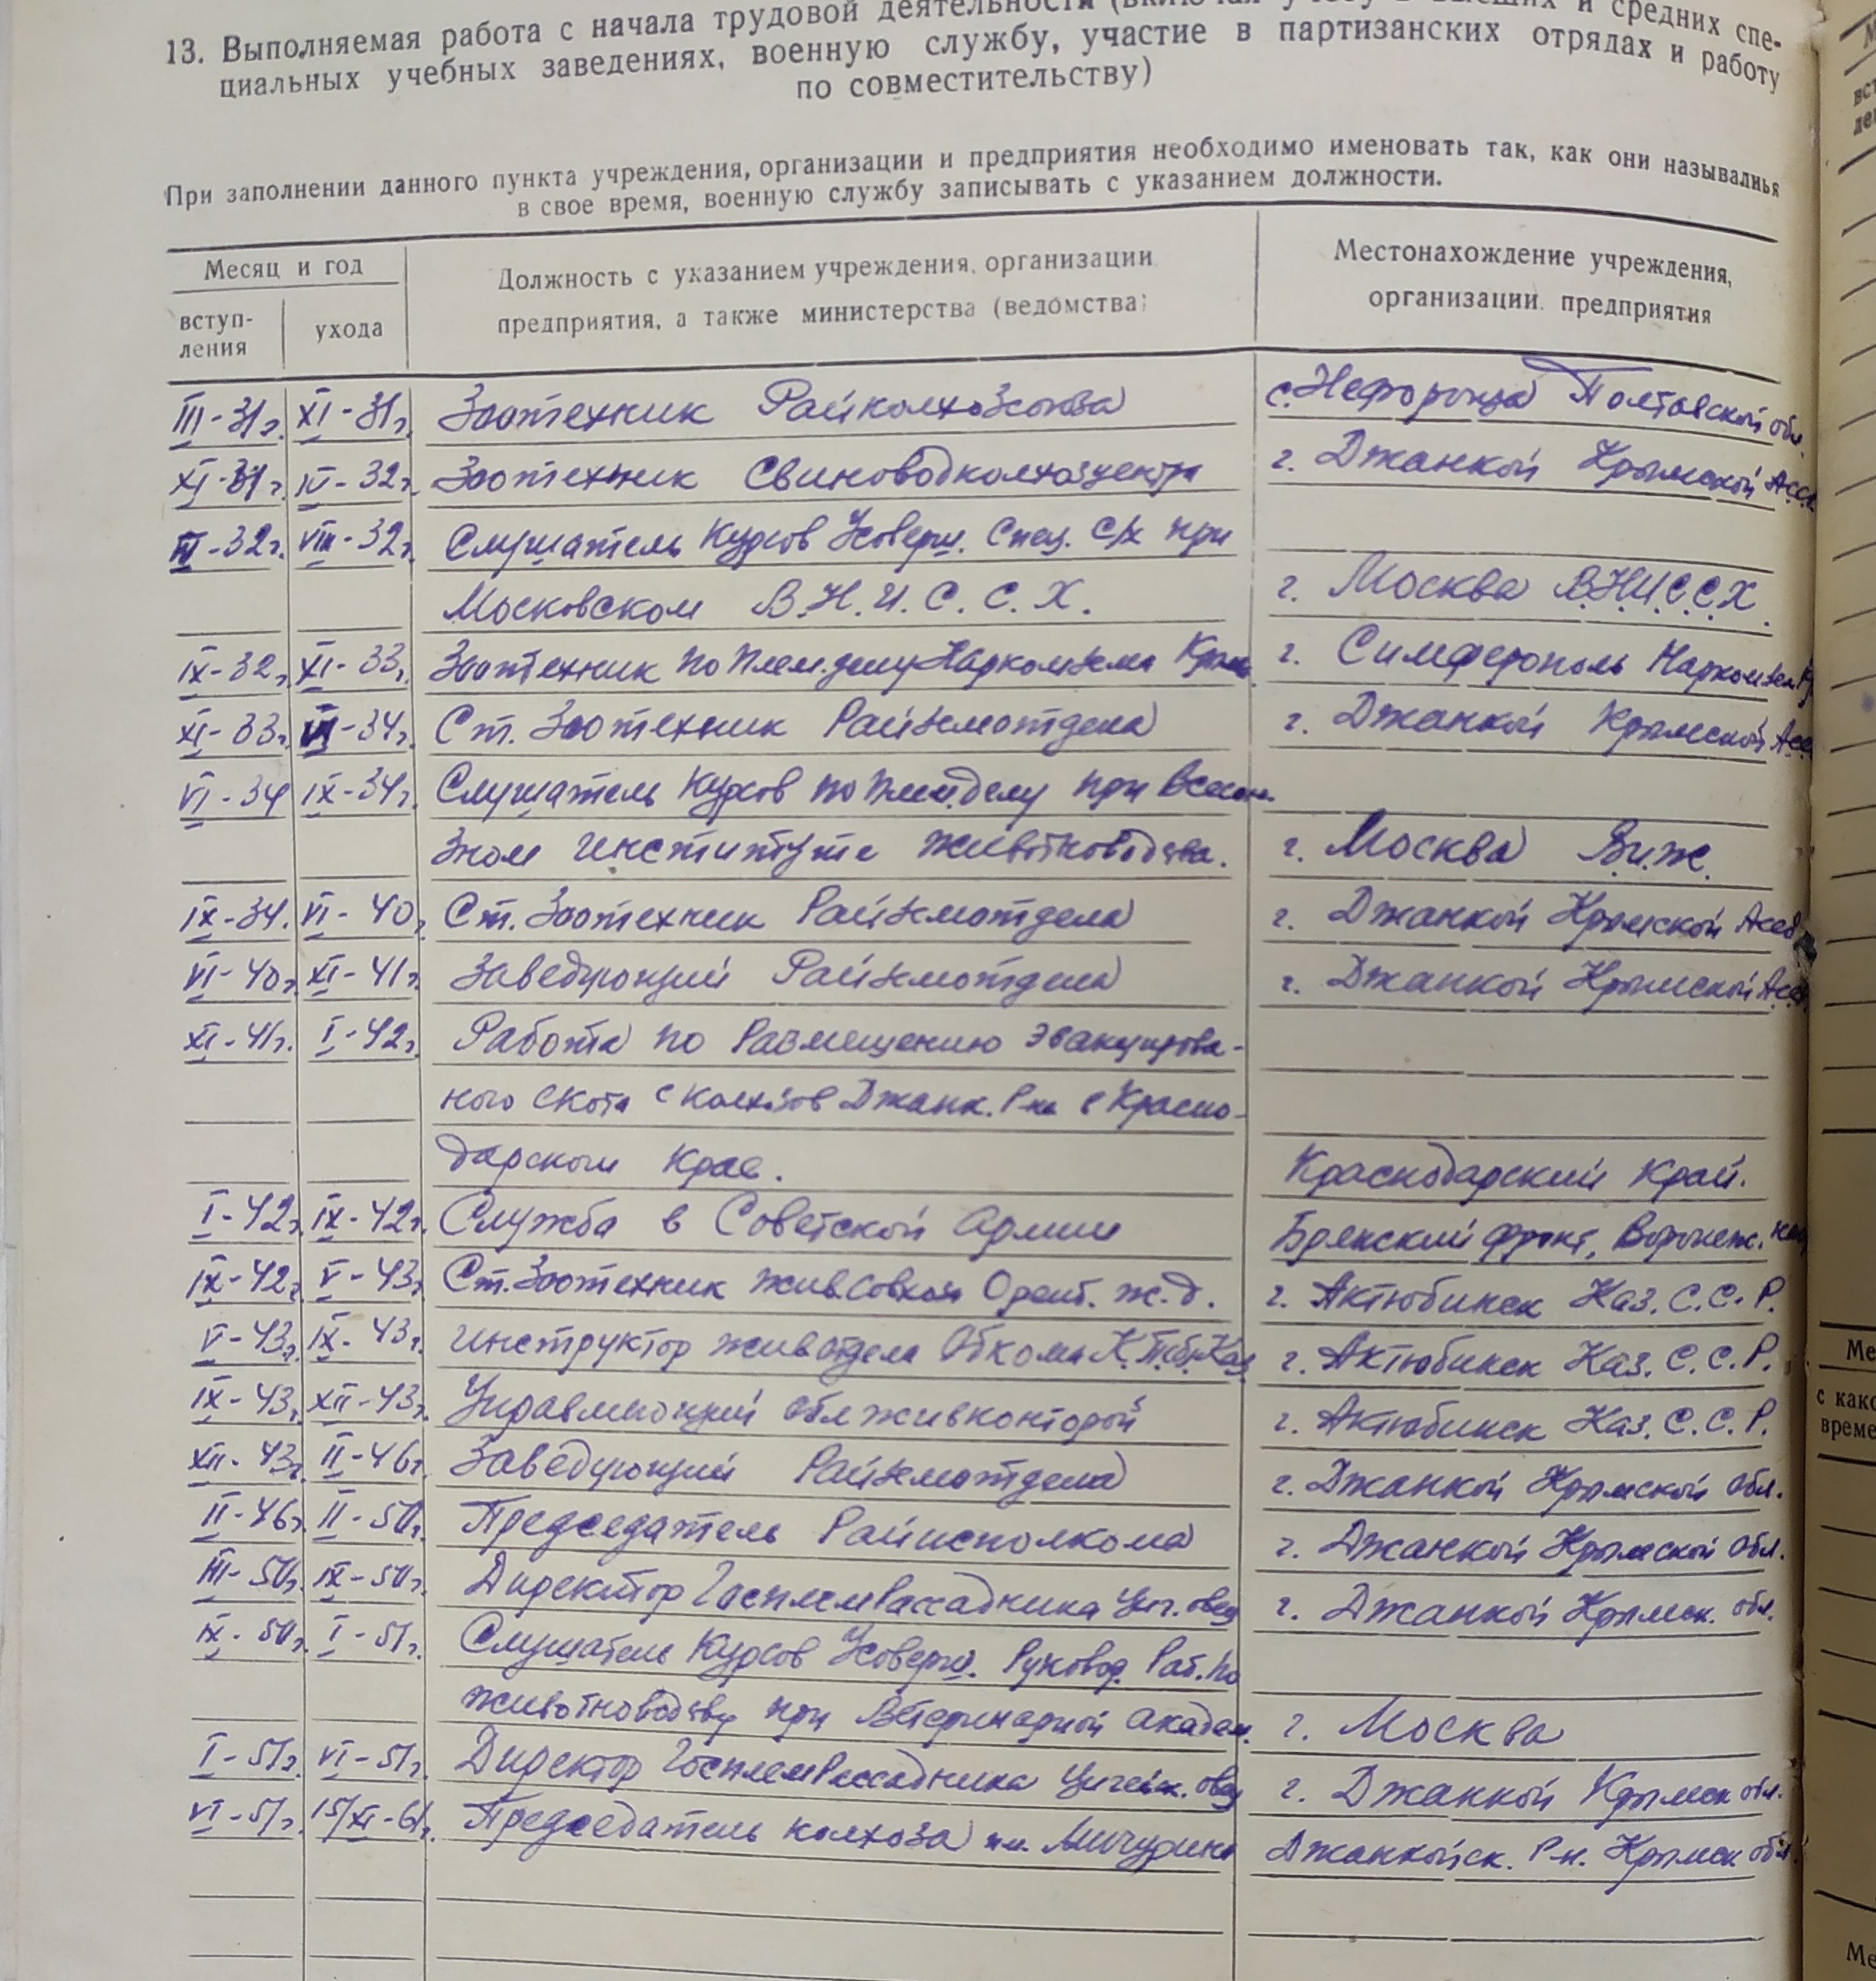 13. Выполняемая работа с начала трудовой деятельности (включая учебу в высших и средних спе-
циальных учебных заведениях, военную службу, участие в партизанских отрядах и работу
по совместительству)
При заполнении данного пункта учреждения, организации и предприятия необходимо именовать так, как они назывались
в свое время, военную службу записывать с указанием должности.
Месяц и год
вступ-
ления
ухода
Должность с указанием учреждения, организации
предприятия, а также министерства (ведомства)
Местонахождение учреждения,
организации, предприятия
III-31г. XI-31г. Зоотехник Райколхозсоюза с. Нефороща Полтавской обл.
XI-31г. IV-32г. Зоотехник Свиноводколхозцентра г. Джанкой Крымской АССР
IV-32г. VIII-32г. Слушатель Курсов Усоверш. Спец. С/х при
Московском В.Н.И.С.С.Х. г. Москва В.Н.И.С.С.Х.
IX-32г. XI-33г. Зоотехник по плем.делу Наркомзема Крым. г. Симферополь Наркомзем
XI-33г. VI-34г. Ст. Зоотехник Райземотдела г. Джанкой Крымской АССР
VI-34 IX-34г. Слушатель Курсов по плем.делу при Всесою-
зном институте животноводства. г. Москва В.И.Ж.
IX-34. VI-40г. Ст. Зоотехник Райземотдела г. Джанкой Крымской АССР
VI-40г. XI-41г. Заведующий Райземотдела г. Джанкой Крымской АССР
XI-41г. I-42г. Работа по размещению эвакуирова-
ного скота с колхозов Джанк. Р-на в Красно-
дарском Крае. Краснодарский Край.
I-42г. IX-42г. Служба в Советской Армии Брянский фронт, Воронеж.
IX-42г. V-43г. Ст. Зоотехник Жив.Совхоза Оренб. ж.д. г. Актюбинск Каз. С.С.Р.
V-43г. IX-43г. инструктор животдела Обкома К.П.(б) Каз. г. Актюбинск Каз. С.С.Р.
IX-43г. XII-43г. Управляющий облживконторой г. Актюбинск Каз. С.С.Р.
XII-43г. II-46г. Заведующий Райземотдела г. Джанкой Крымской обл.
II-46г. II-50г. Председатель Райисполкома г. Джанкой Крымской обл.
III-50г. IX-50г. Директор Госплемрассадника Циг. овец г. Джанкой Крымск. обл.
IX-50г. I-51г. Слушатель Курсов Усоверш. Руковод. Раб. по
животноводству при Ветеринарной академ. г. Москва
I-51г. VI-51г. Директор Госплемрассадника Цигейск. овец г. Джанкой Крымск обл.
VI-51г. 15/XI-61г. Председатель колхоза им. Мичурина Джанкойск. Р-н. Крымск обл.
Ме
с како
време
Ме